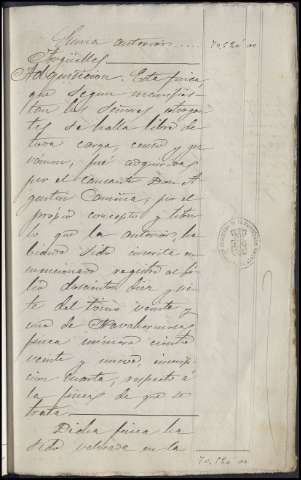 Suma anterior.... 70,520 00
Argüelles
Adquisicion. Esta finca,
que segun manifies-
tan los señores otorgan-
tes se halla libre de
toda carga, censo y gra-
vamen, fué adquirida
por el causante Don A-
gustin Camiña, por el
propio concepto y títu-
lo que la anterior, ha-
biendo sido inscrita en
mencionado registro al fó-
lio doscientos diez y sie-
te del tomo veinte y
uno de Navahermosa
finca número ciento
veinte y nueve, inscrip-
cion cuarta, respecto á
la finca de que se
trata
Dicha finca ha
sido valorada en la
70,520 00